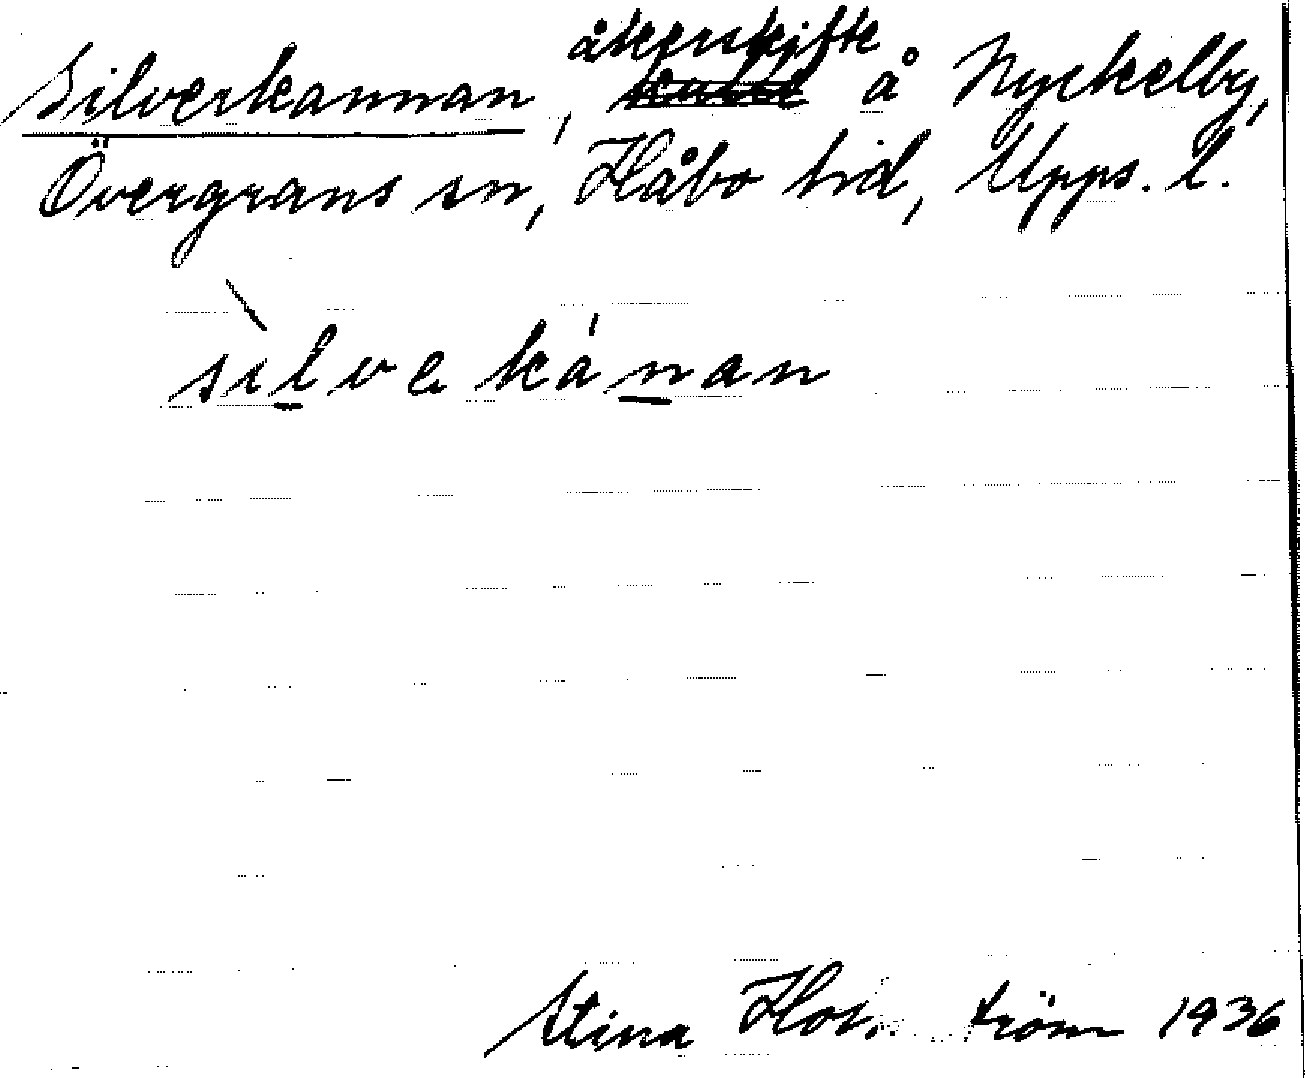 Silverkannan, åkerskifte å Nyckelby,
Övergrans sn, Håbo hd, Upps. l.
sìlvekánan
Stina ström 1936